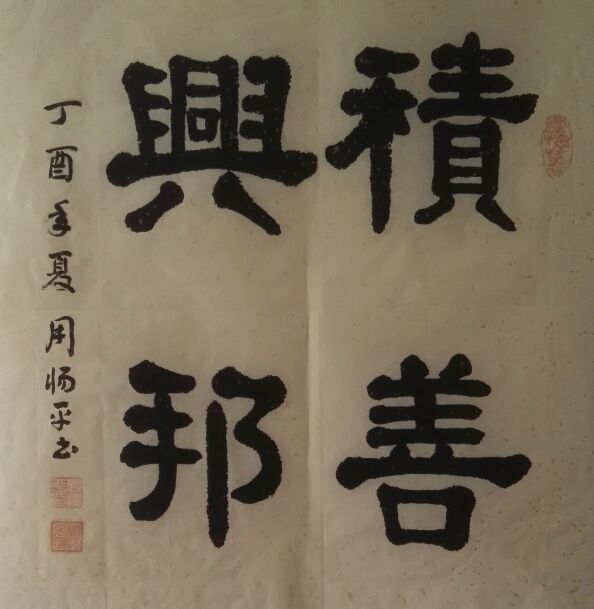 積善
興邦
丁酉年夏 周炀平书